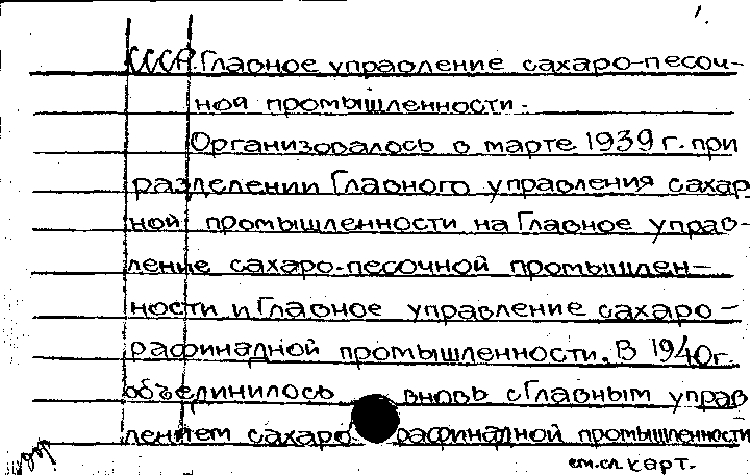 1.
СССР. Главное управление сахаро-песоч-
ной промышленности.
Организовалось в марте 1939 г. при
разделении Главного управления сахар
ной промышленности на Главное управ-
ление сахаро-песочной промышлен-
ности и Главное управление сахаро-
рафинадной промышленности. В 1940г.
объединилось вновь с Главным управ
лением сахаро рафинадной промышленности
см.сл.карт.